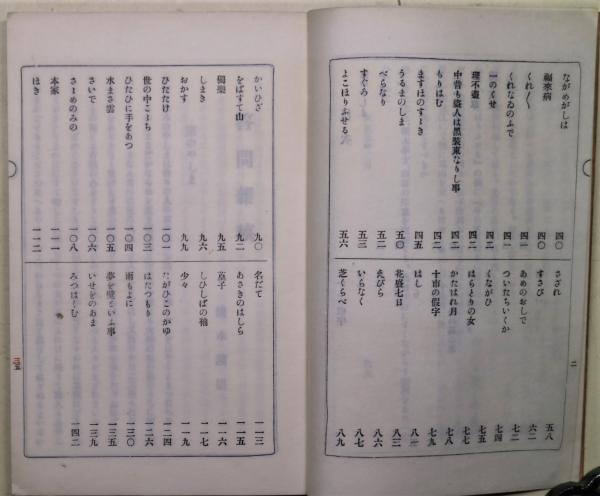 ながめがしは 四〇
福來病 四〇
くれ〳〵 四一
くれなゐのふで 四一
一のくせ 四二
理不盡 四二
中昔も盜人は黑裝束なりし事 四二
もりはむ 四二
ますほのすゝき 四五
うるまのしま 五〇
べらなり 五二
すぐろ 五三
よこほりふせる 五六
さざれ 五八
すさび 六二
あめのおしで 七二
ついたちいくか 七四
くながひ 七五
はらとりの女 七七
かたはれ月 七八
十市の假字 七九
はし 八一
花盛七日 八三
えびら 八六
いらなく 八七
芝くらべ 八九
二
かいひざ 九〇
をばすて山 九二
獨樂 九五
しまき 九六
おかす 九九
ひたたけ 一〇一
世の中こゝち 一〇三
ひたひに手をあつ 一〇四
水まさ雲 一〇五
さいで 一〇六
さゝめのみの 一〇八
本家 一一一
はき 一一二
名だて 一一三
あさきのはしら 一一五
菓子 一一六
しひしばの袖 一一七
少々 一一九
たがひこのかゆ 一二四
はたつもり 一二六
雨もよに 一三〇
夢を壁といふ事 一三五
いせをのあま 一三九
みつはぐむ 一四二